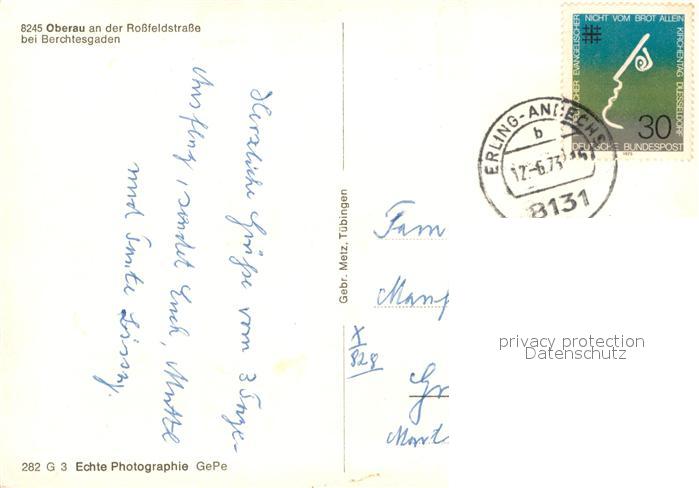 8245 Oberau an der Roßfeldstraße
bei Berchtesgaden
Herzliche Grüße vom 3 Tage-
Ausflug, sendet Euch, Mutter
und Tante
282 G 3 Echte Photographie GePe
Gebr. Metz, Tübingen
NICHT VOM BROT ALLEIN
EVANGELISCHER
KIRCHENTAG DUESSELDORF
30
DEUTSCHE BUNDESPOST
1973
ERLING-ANDECHS
b
12.-6.73
8131
Fam
X
828
privacy protection
Datenschutz